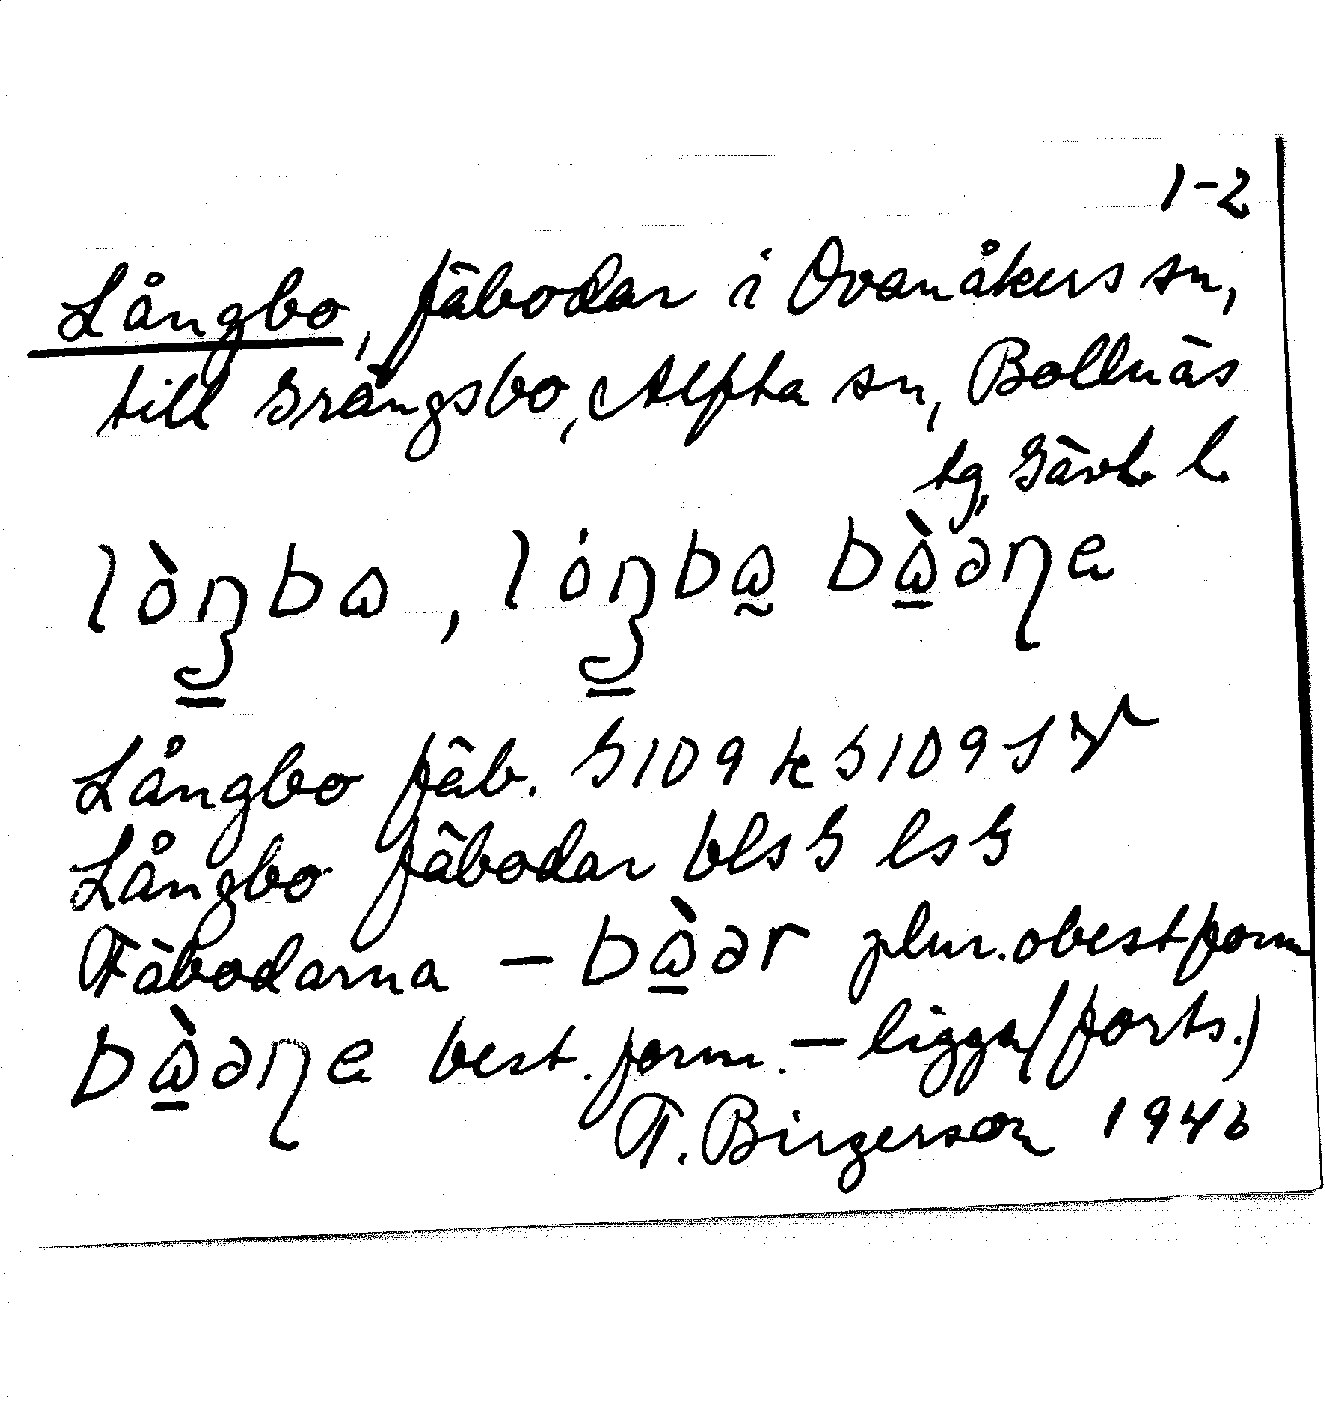 1-2
Långbo, fäbodar i Ovanåkers sn,
till Grängsbo, Alfta sn, Bollnäs
tg, Gävl. l.
lòŋba, lóŋbɷ bɷ̀əɳe
Långbo fäb. G109 k G109 SV
Långbo fäbodar bls G ls G
Fäbodarna – bɷ̀ər plur. obest form
bɷ̀əɳe best. form. – ligga (forts.)
T. Birgerson 1946